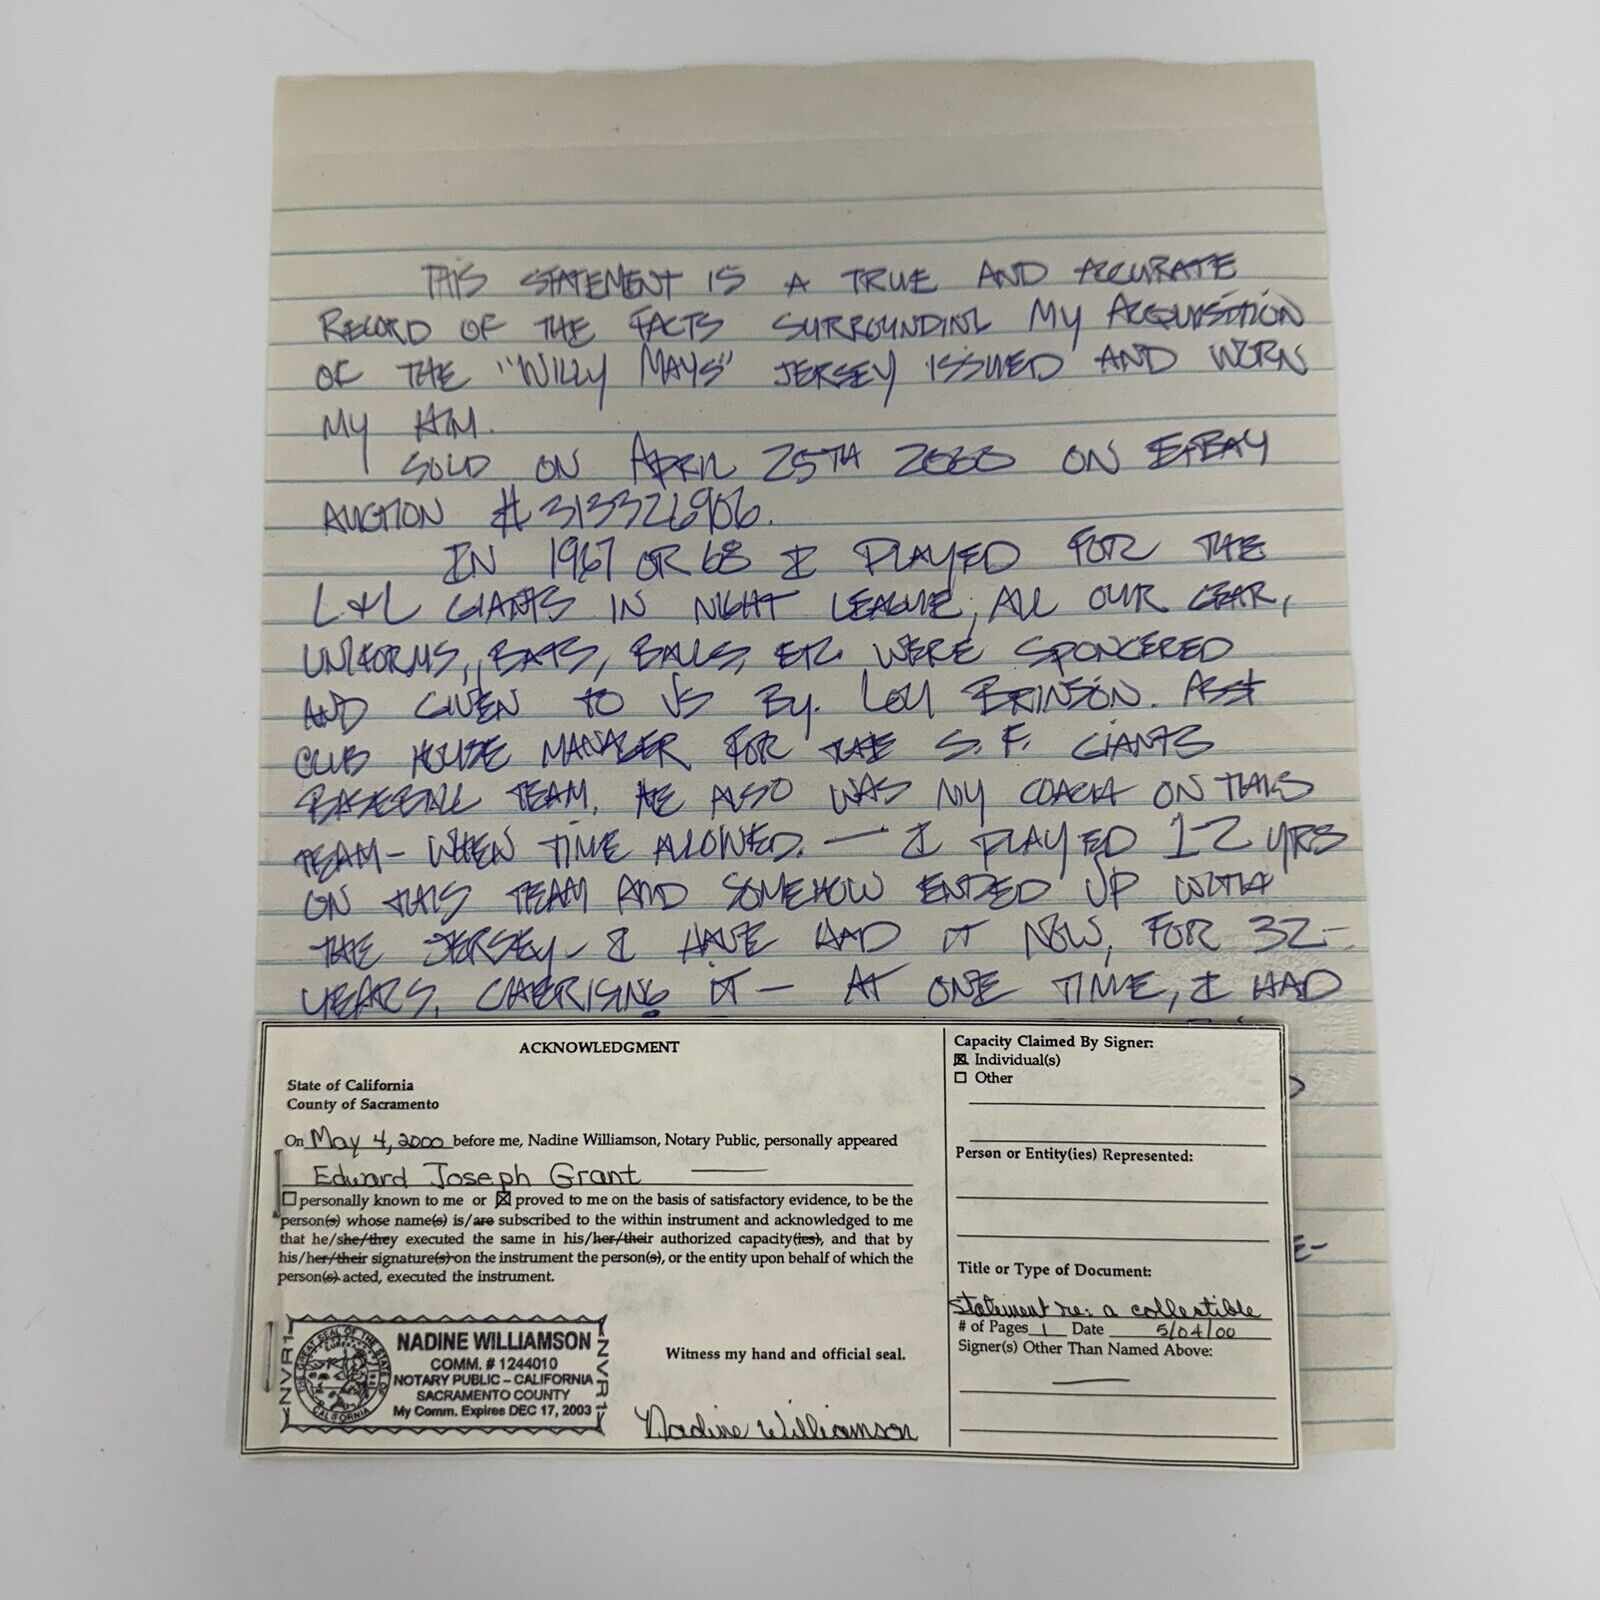 THIS STATEMENT IS A TRUE AND ACCURATE
RECORD OF THE FACTS SURROUNDING MY ACQUISITION
OF THE "WILLY MAYS" JERSEY ISSUED AND WORN
MY HIM.
SOLD ON APRIL 25TH 2000 ON E-BAY
AUCTION # 313326906.
IN 1967 OR 68 I PLAYED FOR THE
L&L GIANTS IN NIGHT LEAGUE, ALL OUR GEAR,
UNIFORMS, BATS, BALLS, ETC. WERE SPONCERED
AND GIVEN TO US BY. LOU BRINSON. ASST
CLUB HOUSE MANAGER FOR THE S.F. GIANTS
BASEBALL TEAM. HE ALSO WAS MY COACH ON THIS
TEAM - WHEN TIME ALLOWED. — I PLAYED 1-2 YRS
ON THIS TEAM AND SOMEHOW ENDED UP WITH
THE JERSEY - I HAVE HAD IT NOW, FOR 32-
YEARS, CHERISING IT — AT ONE TIME, I HAD
ACKNOWLEDGMENT
State of California
County of Sacramento
On May 4, 2000 before me, Nadine Williamson, Notary Public, personally appeared
Edward Joseph Grant
☐ personally known to me or ☒ proved to me on the basis of satisfactory evidence, to be the
person(s) whose name(s) is/are subscribed to the within instrument and acknowledged to me
that he/she/they executed the same in his/her/their authorized capacity(ies), and that by
his/her/their signature(s) on the instrument the person(s), or the entity upon behalf of which the
person(s) acted, executed the instrument.
NADINE WILLIAMSON
COMM. # 1244010
NOTARY PUBLIC - CALIFORNIA
SACRAMENTO COUNTY
My Comm. Expires DEC 17, 2003
NVR1
NVR1
THE GREAT SEAL OF THE STATE OF CALIFORNIA
Witness my hand and official seal.
Nadine Williamson
Capacity Claimed By Signer:
☒ Individual(s)
☐ Other
Person or Entity(ies) Represented:
Title or Type of Document:
Statement re: a collectible
# of Pages 1 Date 5/04/00
Signer(s) Other Than Named Above: